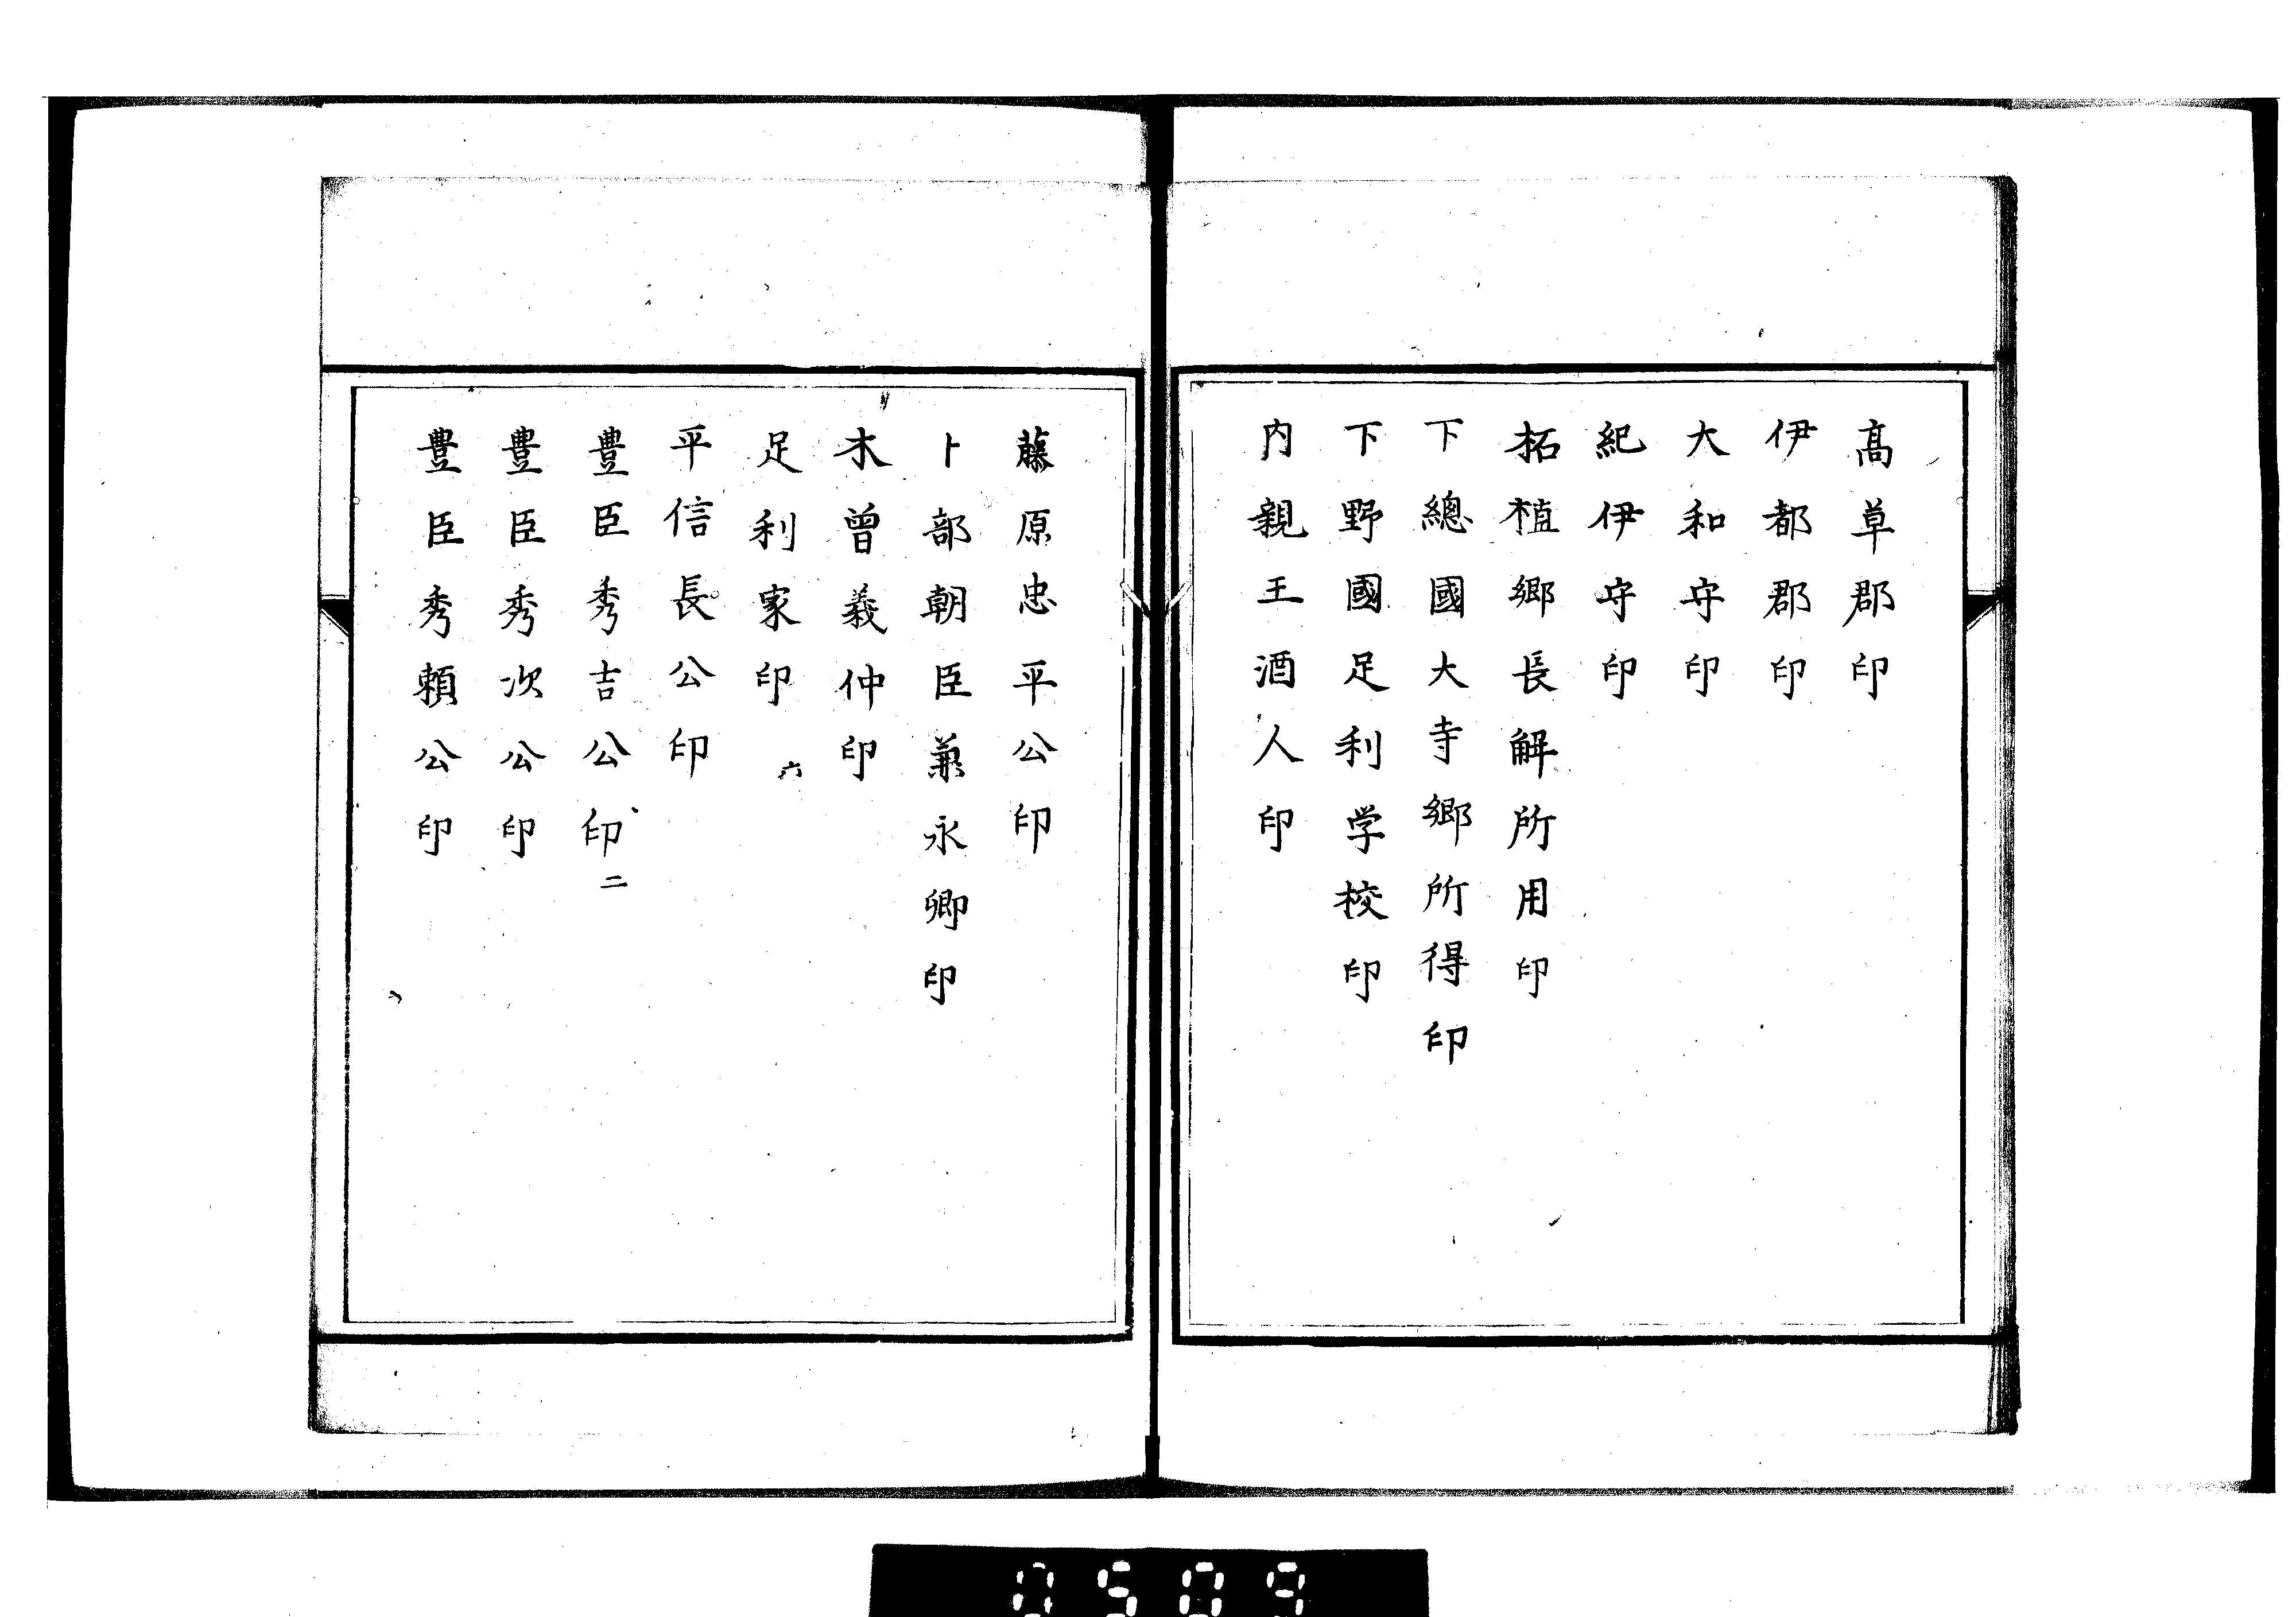 髙草郡印
伊都郡印
大和守印
紀伊守印
拓植郷長解所用印
下總國大寺郷所得印
下野國足利学校印
内親王酒人印
藤原忠平公印
卜部朝臣兼永卿印
木曾義仲印
足利家印 六
平信長公印
豊臣秀吉公印 二
豊臣秀次公印
豊臣秀頼公印
0509